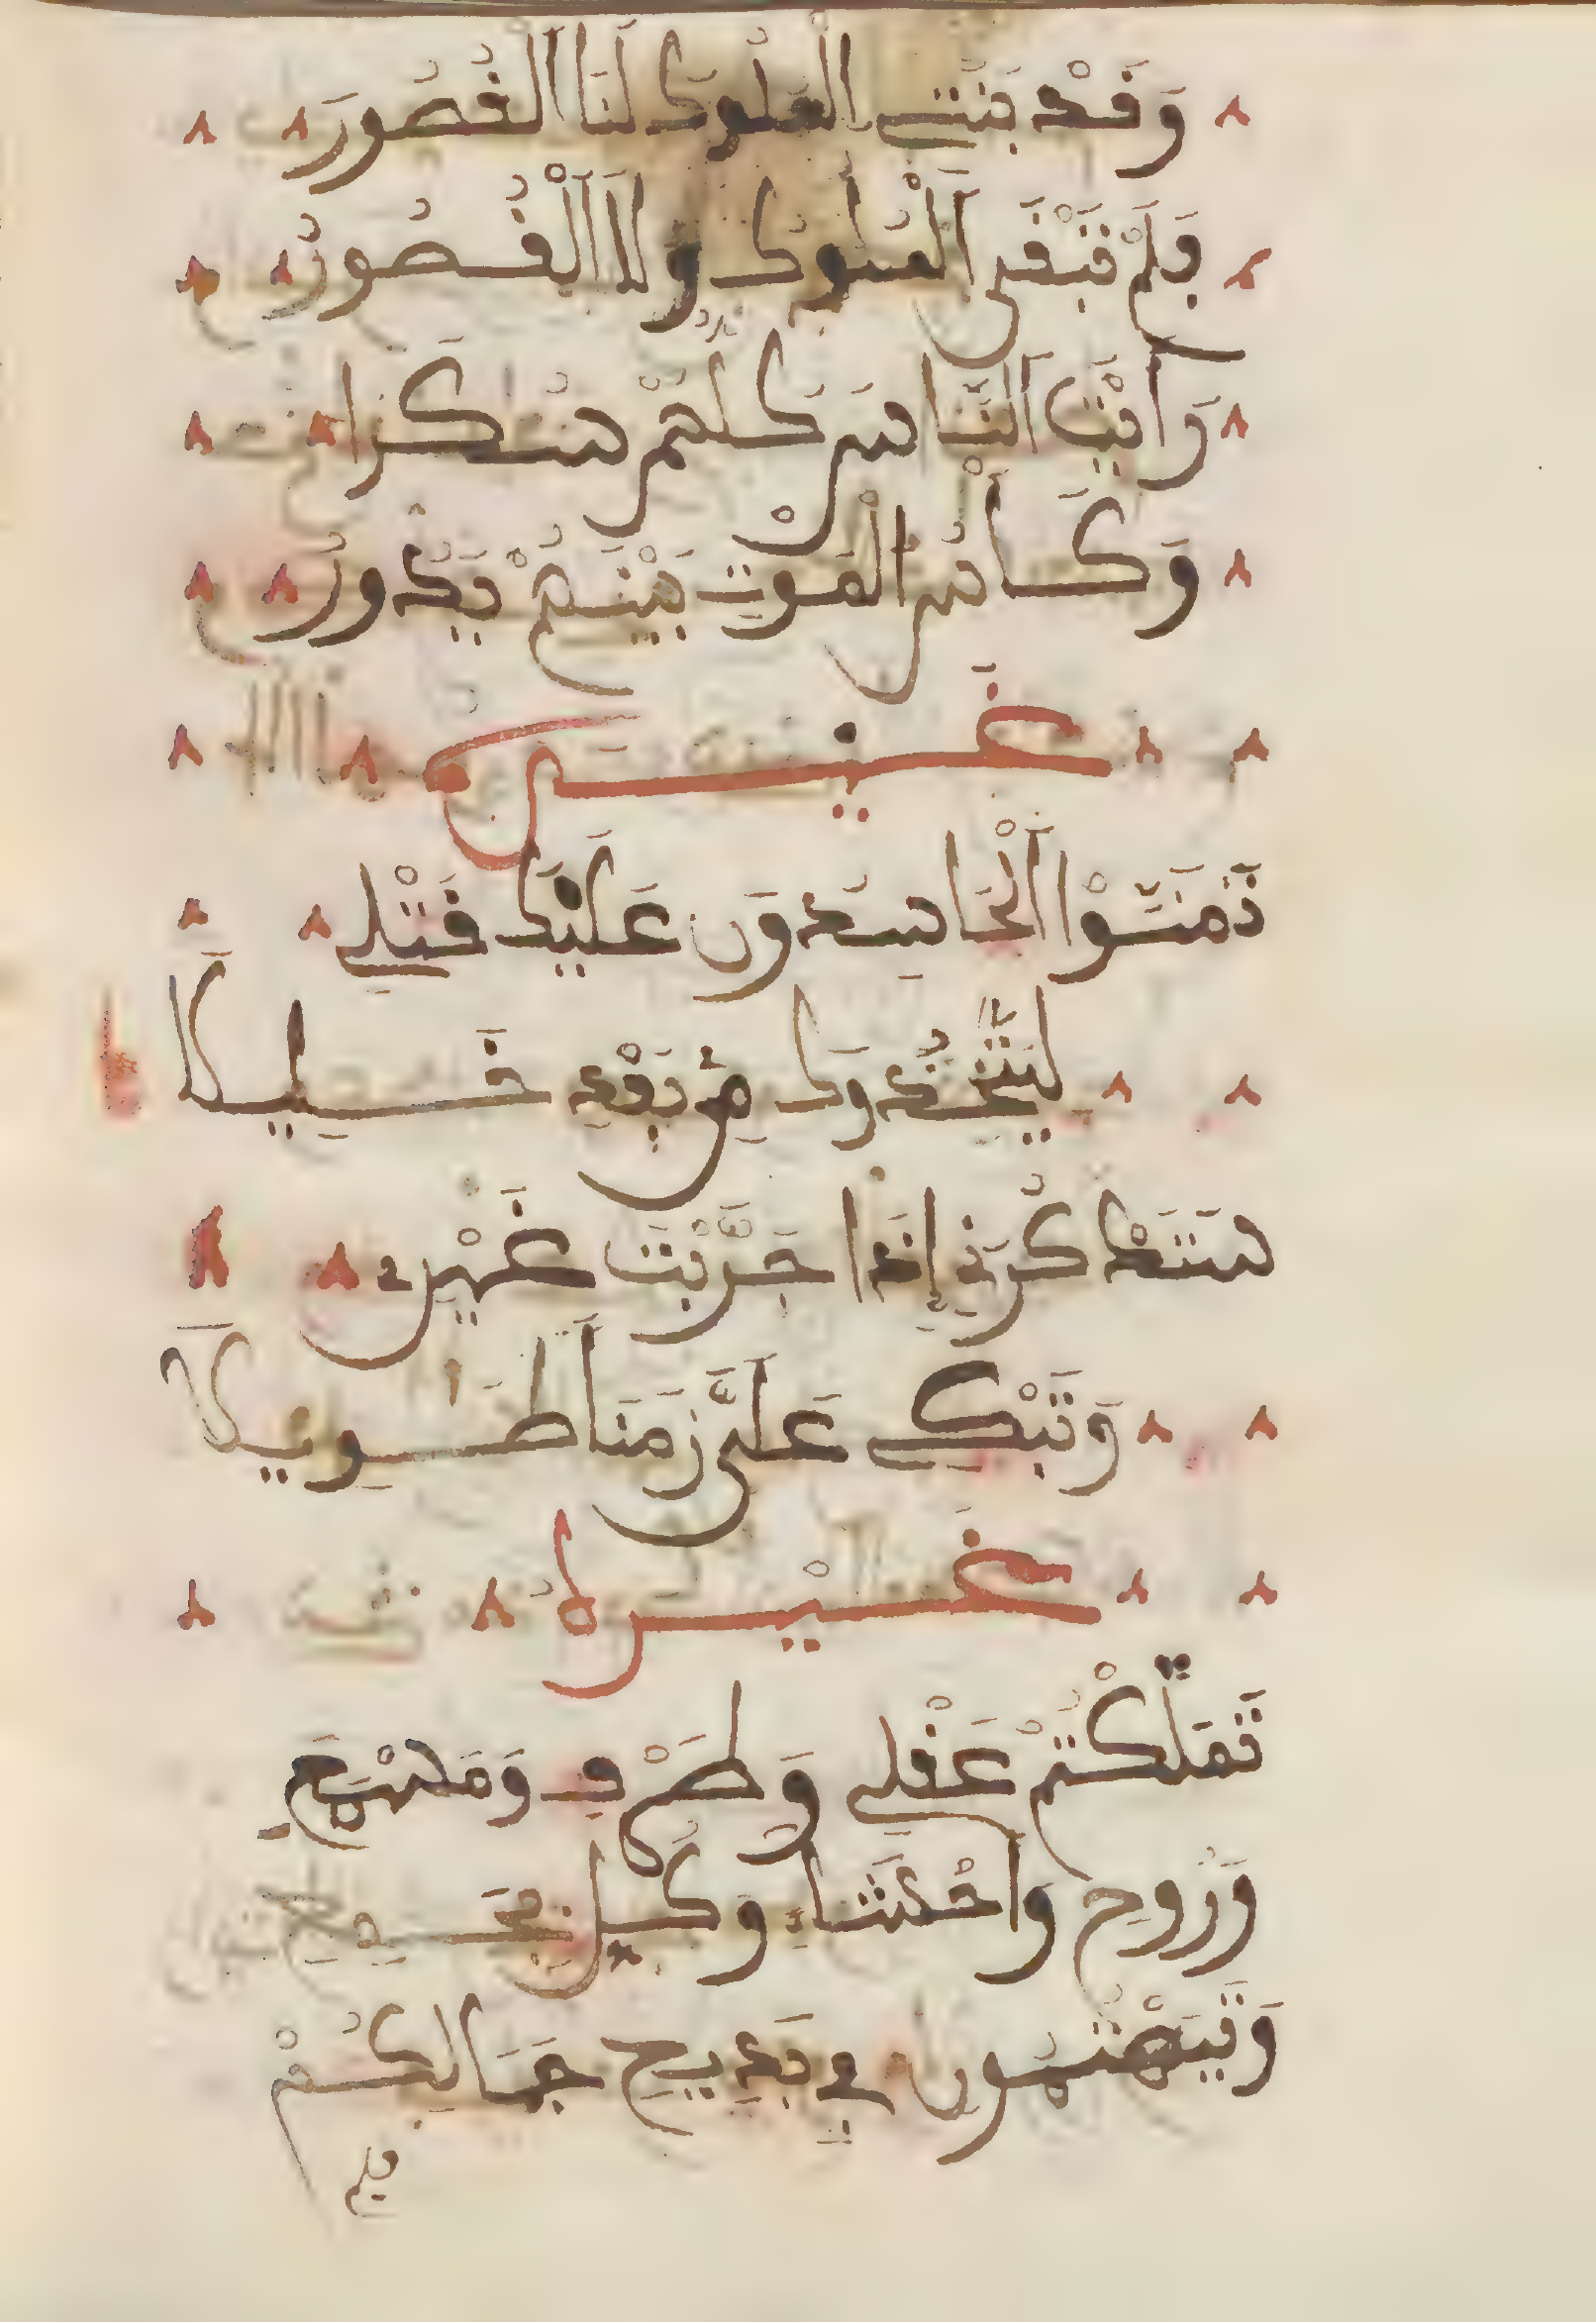 وَقَدْ بَنَتِ الْمُلُوكُ لَنَا الْقُصُورَ
فَلَمْ تَبْقَى الْمُلُوكُ وَلَا الْقُصُورُ
رَأَيْتَ النَّاسَ كُلَّهُمْ سُكَرَا
وَكَأْسُ الْمَوْتِ بَيْنَهُمْ يَدُورُ
غَيْرُهُ
تَمَنَّوْا الْحَاسِدُونَ عَلَيْكَ قَتْلِي
لِيَتَّخِذُوكَ مِنْ بَعْدِ خَلِيلَا
سَتَذْكُرُنِي إِذَا جَرَّبْتَ غَيْرِي
وَتَبْكِي عَلَيَّ زَمَنَا طَوِيلَا
غَيْرُهُ
تَمَلَّكْتُمْ عَقْلِي وَطَرْفِي وَمَسْمَعِ
وَرُوحِ وَاحْشَاءِ وَكُلِّ جَمِيعِ
وَتَيَّهْتُمُونِ فِي بَدِيعِ جَمَالِكُمْ
فلم